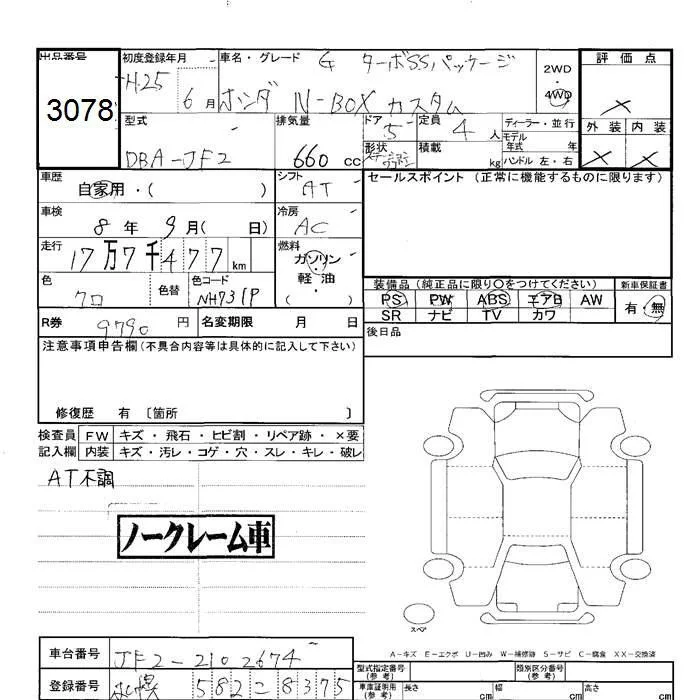 出品番号 3078
初度登録年月 H25 6月
車名・グレード G ターボSSパッケージ
ホンダ N-BOX カスタム
2WD・4WD
評価点 ×
外装 × 内装 ×
型式 DBA-JF2
排気量 660cc
ドア 5 定員 4人
形状 積載 kg
ディーラー・並行
モデル年式 年
ハンドル 左・右
車歴 自家用・( )
シフト AT
セールスポイント (正常に機能するものに限ります)
車検 8年9月( 日)
冷房 AC
走行 17万7千477km
燃料 ガソリン・軽油・( )
色 クロ 色替 色コード NH731P
装備品 (純正品に限り〇をつけてください)
PS PW ABS エアB AW
SR ナビ TV カワ
新車保証書 有・無
R券 9790円 名変期限 月 日
後日品
注意事項申告欄(不具合内容等は具体的に記入して下さい)
修復歴 有 〔箇所 〕
検査員記入欄
FW キズ・飛石・ヒビ割・リペア跡・×要
内装 キズ・汚レ・コゲ・穴・スレ・キレ・破レ
AT不調
ノークレーム車
スペア
A-キズ E-エクボ U-凹み W-補修跡 S-サビ C-腐食 XX-交換済
車台番号 JF2-2102674
登録番号 札幌 582 こ 8375
型式指定番号(参考) 類別区分番号(参考)
車庫証明用(参考) 長さ cm 幅 cm 高さ cm